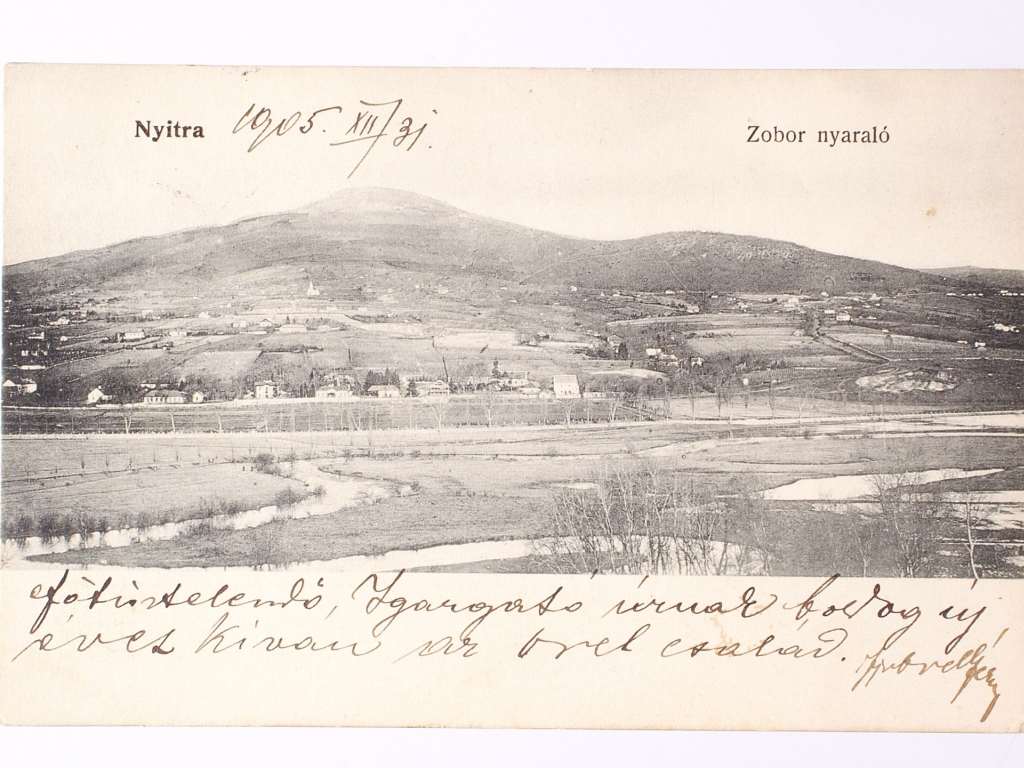 Nyitra 1905. XII/31.
Zobor nyaraló
főtisztelendő, Igazgató úrnak boldog új
évet Kiván az Orel család.